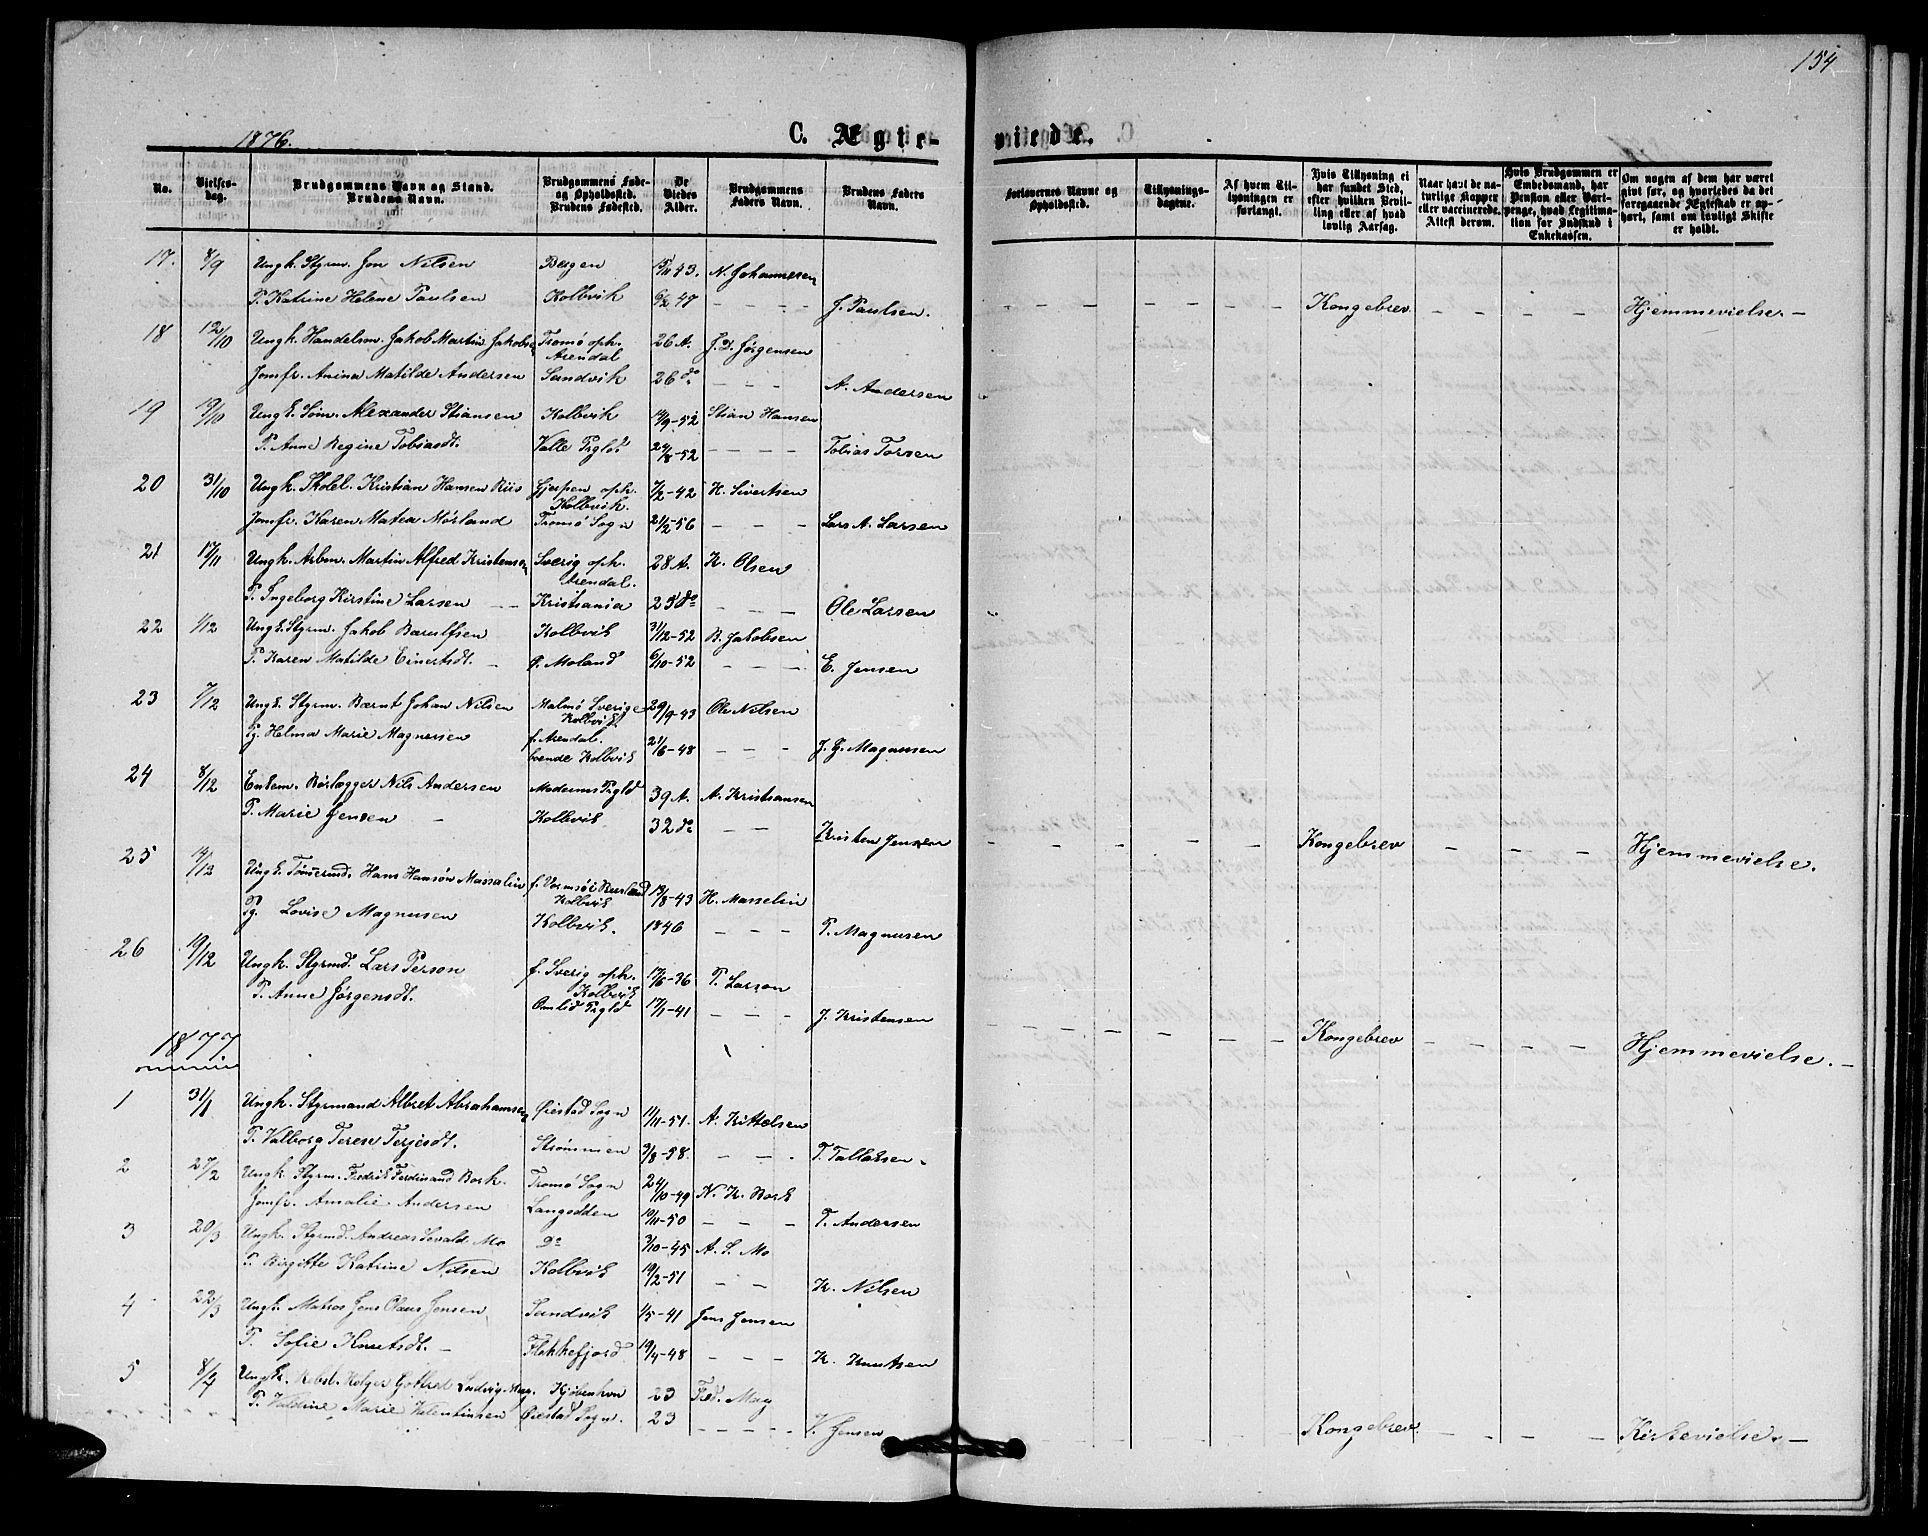 154
1876.
C. Ægte-
viede.
No.
Vielses-
dag.
Brudgommens Navn og Stand.
Brudens Navn.
Brudgommens Føde-
og Opholdssted.
Brudens Fødested.
De
Viedes
Alder.
Brudgommens
Faders Navn.
Brudens Faders
Navn.
Forlovernes Navne og
Opholdssted.
Tillysnings-
dagene.
Af hvem Til-
lysningen er
forlangt.
Hvis Tillysning ei
har fundet Sted,
efter hvilken Bevil-
ling eller af hvad
lovlig Aarsag.
Naar havt de na-
turlige Kopper
eller vaccinerede.
Attest derom.
Hvis Brudgommen er
Embedsmand, har
Pension eller Vart-
penge, hvad Legitima-
tion for Indskud i
Enkekassen.
Om nogen af dem har været
gift før, og hvorledes da det
foregaaende Ægteskab er op-
hørt, samt om lovligt Skifte
er holdt.
17. 8/9 Ungk. Styrm. Jon Nilsen Bergen 43. N. Johannesen
P. Katrine Helene Paulsen Kolbvik 6/2 47 - - - - J. Paulsen. Kongebrev. Hjemmevielse. -
18 12/10 Ungk. Handelsm. Jakob Martin Jakobsen Tromø oph. Arendal 26 A. J. D. Jørgensen
Jomfr. Anina Matilde Andersen Sandvik 26 do - - - A. Andersen
19 19/10 Ungk. Søm. Alexander Stiansen Kolbvik 14/9-52 Stian Hansen
P. Anne Regine Tobiasdt. Valle Prgld. 24/8-52 - - - - Tobias Torsen
20 31/10 Ungk. Skolel. Kristian Hansen Riis Gjerpen oph. Kolbvik. 7/2-42 H. Sivertsen
Jomfr. Karen Matea Mørland Tromø Sogn 21/2-56 - - - Lars A. Larsen
21 17/11 Ungk. Arbm. Martin Alfred Kristensen Sverig oph. Arendal. 28 A. K. Olsen
P. Ingeborg Kirstine Larsen - - Kristiania 25 do - - - Ole Larsen
22 1/12 Ungk. Styrm. Jakob Barulfsen Kolbvik 31/12-52 B. Jakobsen
P. Karen Matilde Einertsdt. - Ø. Moland 6/10-52 - - - E. Jensen
23 7/12 Ungk. Styrm. Bernt Johan Nilsen Malmø Sverige Kolbvik. 29/9-43 Ole Nilsen
Pg. Helma Marie Magnesen f. Arendal. boende Kolbvik 21/6-48 - - - J. G. Magnusen
24 8/12 Enkem. Rørlægger Nils Andersen Modums Prgld 39 A. A. Kristiansen
P. Marie Jensen - Kolbvik 32 do - - Kristen Jensen Kongebrev Hjemmevielse.
25 14/12 Ungk. Tømmermd. Hans Hansøn Massalin f. Vormsö i Rusland Kolbvik 19/8-43 H. Masselin
Pg. Lovise Magnusen Kolbvik. 1846 - - - P. Magnusen
26 19/12 Ungk. Styrmd. Lars Person f. Sverig oph. Kolbvik 17/6-36 P. Larson
P. Anne Jørgensdt. Omlid Prgld 17/1-41 - - - J. Kristensen Kongebrev Hjemmevielse. -
1877
1 31/1 Ungk. Styrmand Albret Abrahamsen Øiestad Sogn 11/11-51. A. Kittelsen
P. Valborg Terese Terjesdt. Strømmen 3/8-58. - - - T. Tallaksen.
2 27/2 Ungk. Styrm. Fredrik Ferdinand Bork. Tromø Sogn 24/10-49 N. K. Bork
Jomfr. Amalie Andersen Langodden 19/11-50 - - - T. Andersen
3 20/3 Ungk. Styrmd. Andreas Sevald Mo do 3/10-45 A. S. Mo
P. Birgitte Katrine Nilsen Kolbvik 19/2-51 - - K. Nilsen
4 22/3 Ungk. Matros Jens Olaus Jensen Sandvik 1/5-41 Jens Jensen
P. Sofie Knutsdt. - Flekkefjord 19/4-48 - - - K. Knutsen
5 8/4 Ungk. Rebsl. Holger Gotfred Ludvig May. Kjøbenhvn 23 Fred. May
P. Valdine Marie Valentinsen Øiestad Sogn. 23 - - - - V. Jensen Kongebrev. Kirkevielse. -